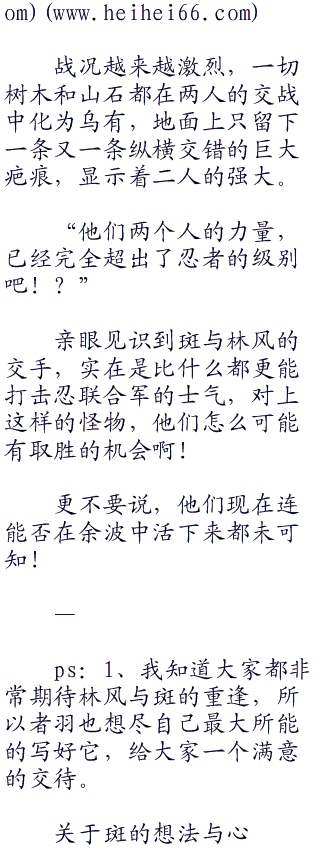 om)(www.heihei66.com)
战况越来越激烈，一切
树木和山石都在两人的交战
中化为乌有，地面上只留下
一条又一条纵横交错的巨大
疤痕，显示着二人的强大。
“他们两个人的力量，
已经完全超出了忍者的级别
吧！？”
亲眼见识到斑与林风的
交手，实在是比什么都更能
打击忍联合军的士气，对上
这样的怪物，他们怎么可能
有取胜的机会啊！
更不要说，他们现在连
能否在余波中活下来都未可
知！
—
ps：1、我知道大家都非
常期待林风与斑的重逢，所
以者羽也想尽自己最大所能
的写好它，给大家一个满意
的交待。
关于斑的想法与心